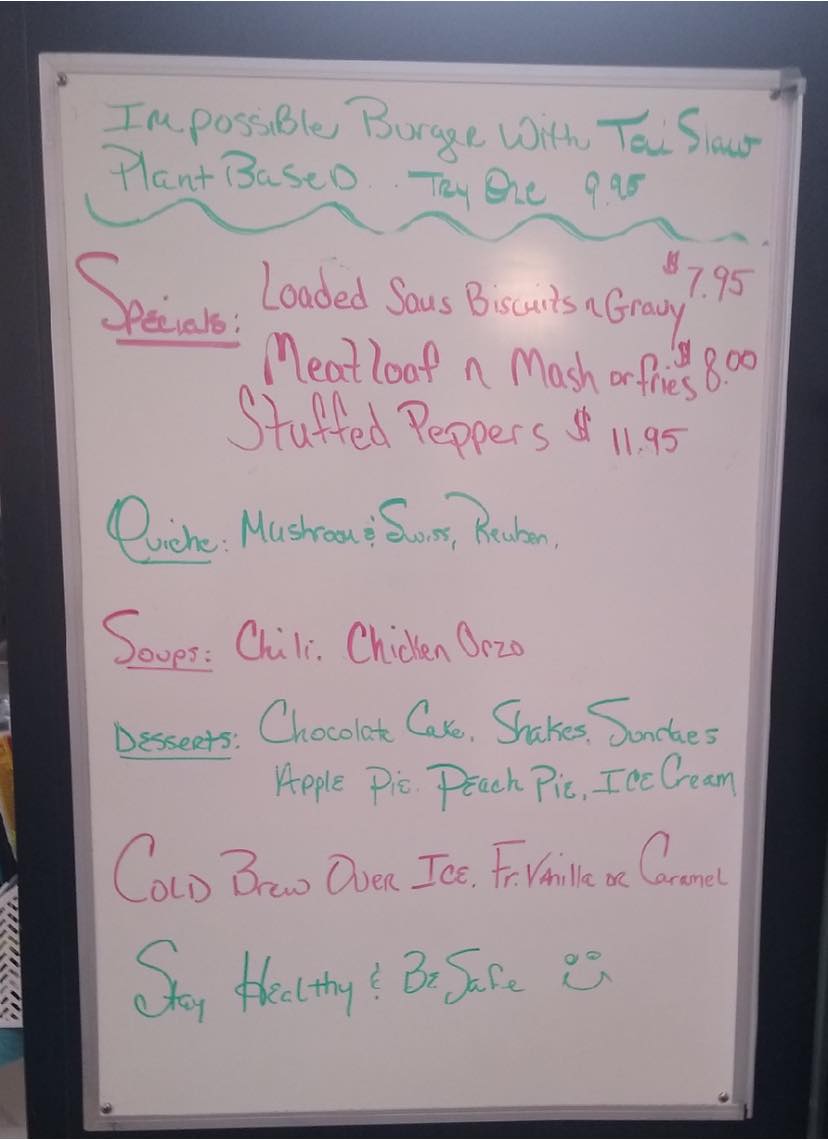 Impossible Burger With Tai Slaw
Plant Based.. Try One 9.95
Specials: Loaded Saus Biscuits n Gravy $7.95
Meatloaf n Mash or fries $8.00
Stuffed Peppers $11.95
Quiche: Mushroom & Swiss, Reuben,
Soups: Chili. Chicken Orzo
Desserts: Chocolate Cake. Shakes. Sundaes
Apple Pie. Peach Pie, Ice Cream
Cold Brew Over Ice. Fr. Vanilla or Caramel
Stay Healthy & Be Safe